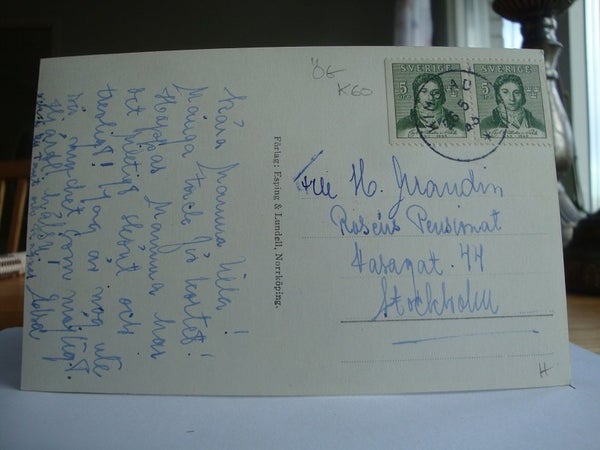 Kära Mamma lilla!
Många tack för kortet!
Hoppas Mamma har
det riktigt skönt och
trevligt! Jag är nog ute
så mycket som möjligt.
Hjärtl. hälsn.
Ebba
Förlag: Esping & Lundell, Norrköping.
ÖE
K60
SVERIGE
5
SVERIGE
5
Fru H. Grandin
Roséns Pensionat
Vasagat. 44
Stockholm
H